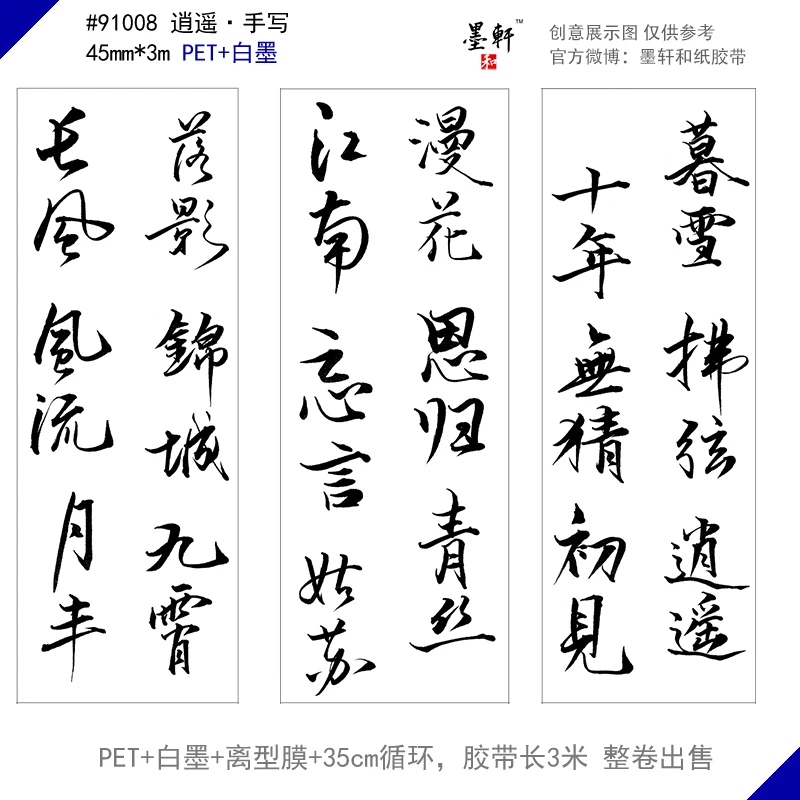 #91008 逍遥·手写
45mm*3m PET+白墨
墨軒™
和
创意展示图 仅供参考
官方微博：墨轩和纸胶带
落影 錦城 九霄
长風 風流 月丰
漫花 思归 青丝
江南 忘言 姑苏
暮雪 拂弦 逍遥
十年 無猜 初見
PET+白墨+离型膜+35cm循环，胶带长3米 整卷出售